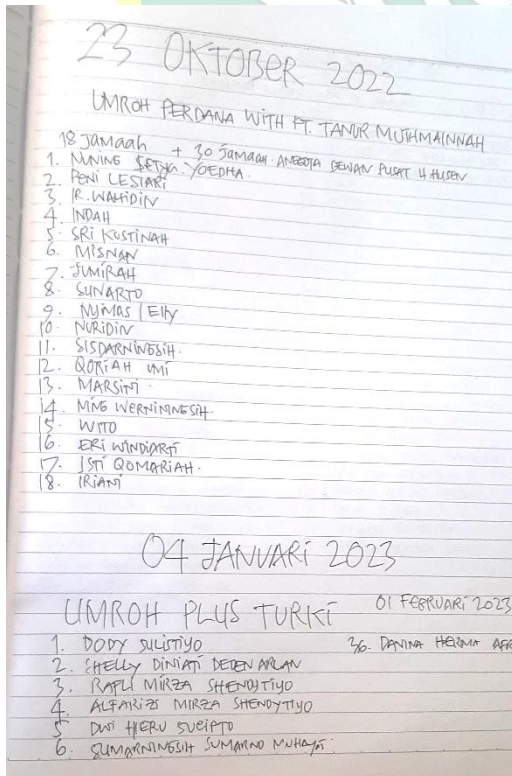 23 OKTOBER 2022
UMROH PERDANA WITH PT. TANUR MUTHMAINNAH
18 JAMAAH + 30 JAMAAH ANGGOTA DEWAN PUSAT H HUSEN
1. NUNING SETYA YOEDHA
2. PENI LESTARI
3. IR. WAHIDIN
4. INDAH
5. SRI KUSTINAH
6. MISNAN
7. JUMIRAH
8. SUNARTO
9. NYIMAS | Elly
10. NURIDIN
11. SISDARNINGSIH
12. QORIAH UMI
13. MARSINI
14. NING WERNININGSIH
15. WITO
16. ERI WINDIARTI
17. ISTI QOMARIAH.
18. IRIANI
04 JANUARI 2023
UMROH PLUS TURKI
01 FEBRUARI 2023
1. DODY SULISTIYO
36. DANINA HERMA AFR
2. SHELLY DINIATI DEDEN ARLAN
3. RAFLI MIRZA SHENDYTIYO
4. ALFARIZI MIRZA SHENDYTIYO
5 DWI HERU SUCIPTO
6. SUMARNINGSIH SUMARNO MUHAYAT